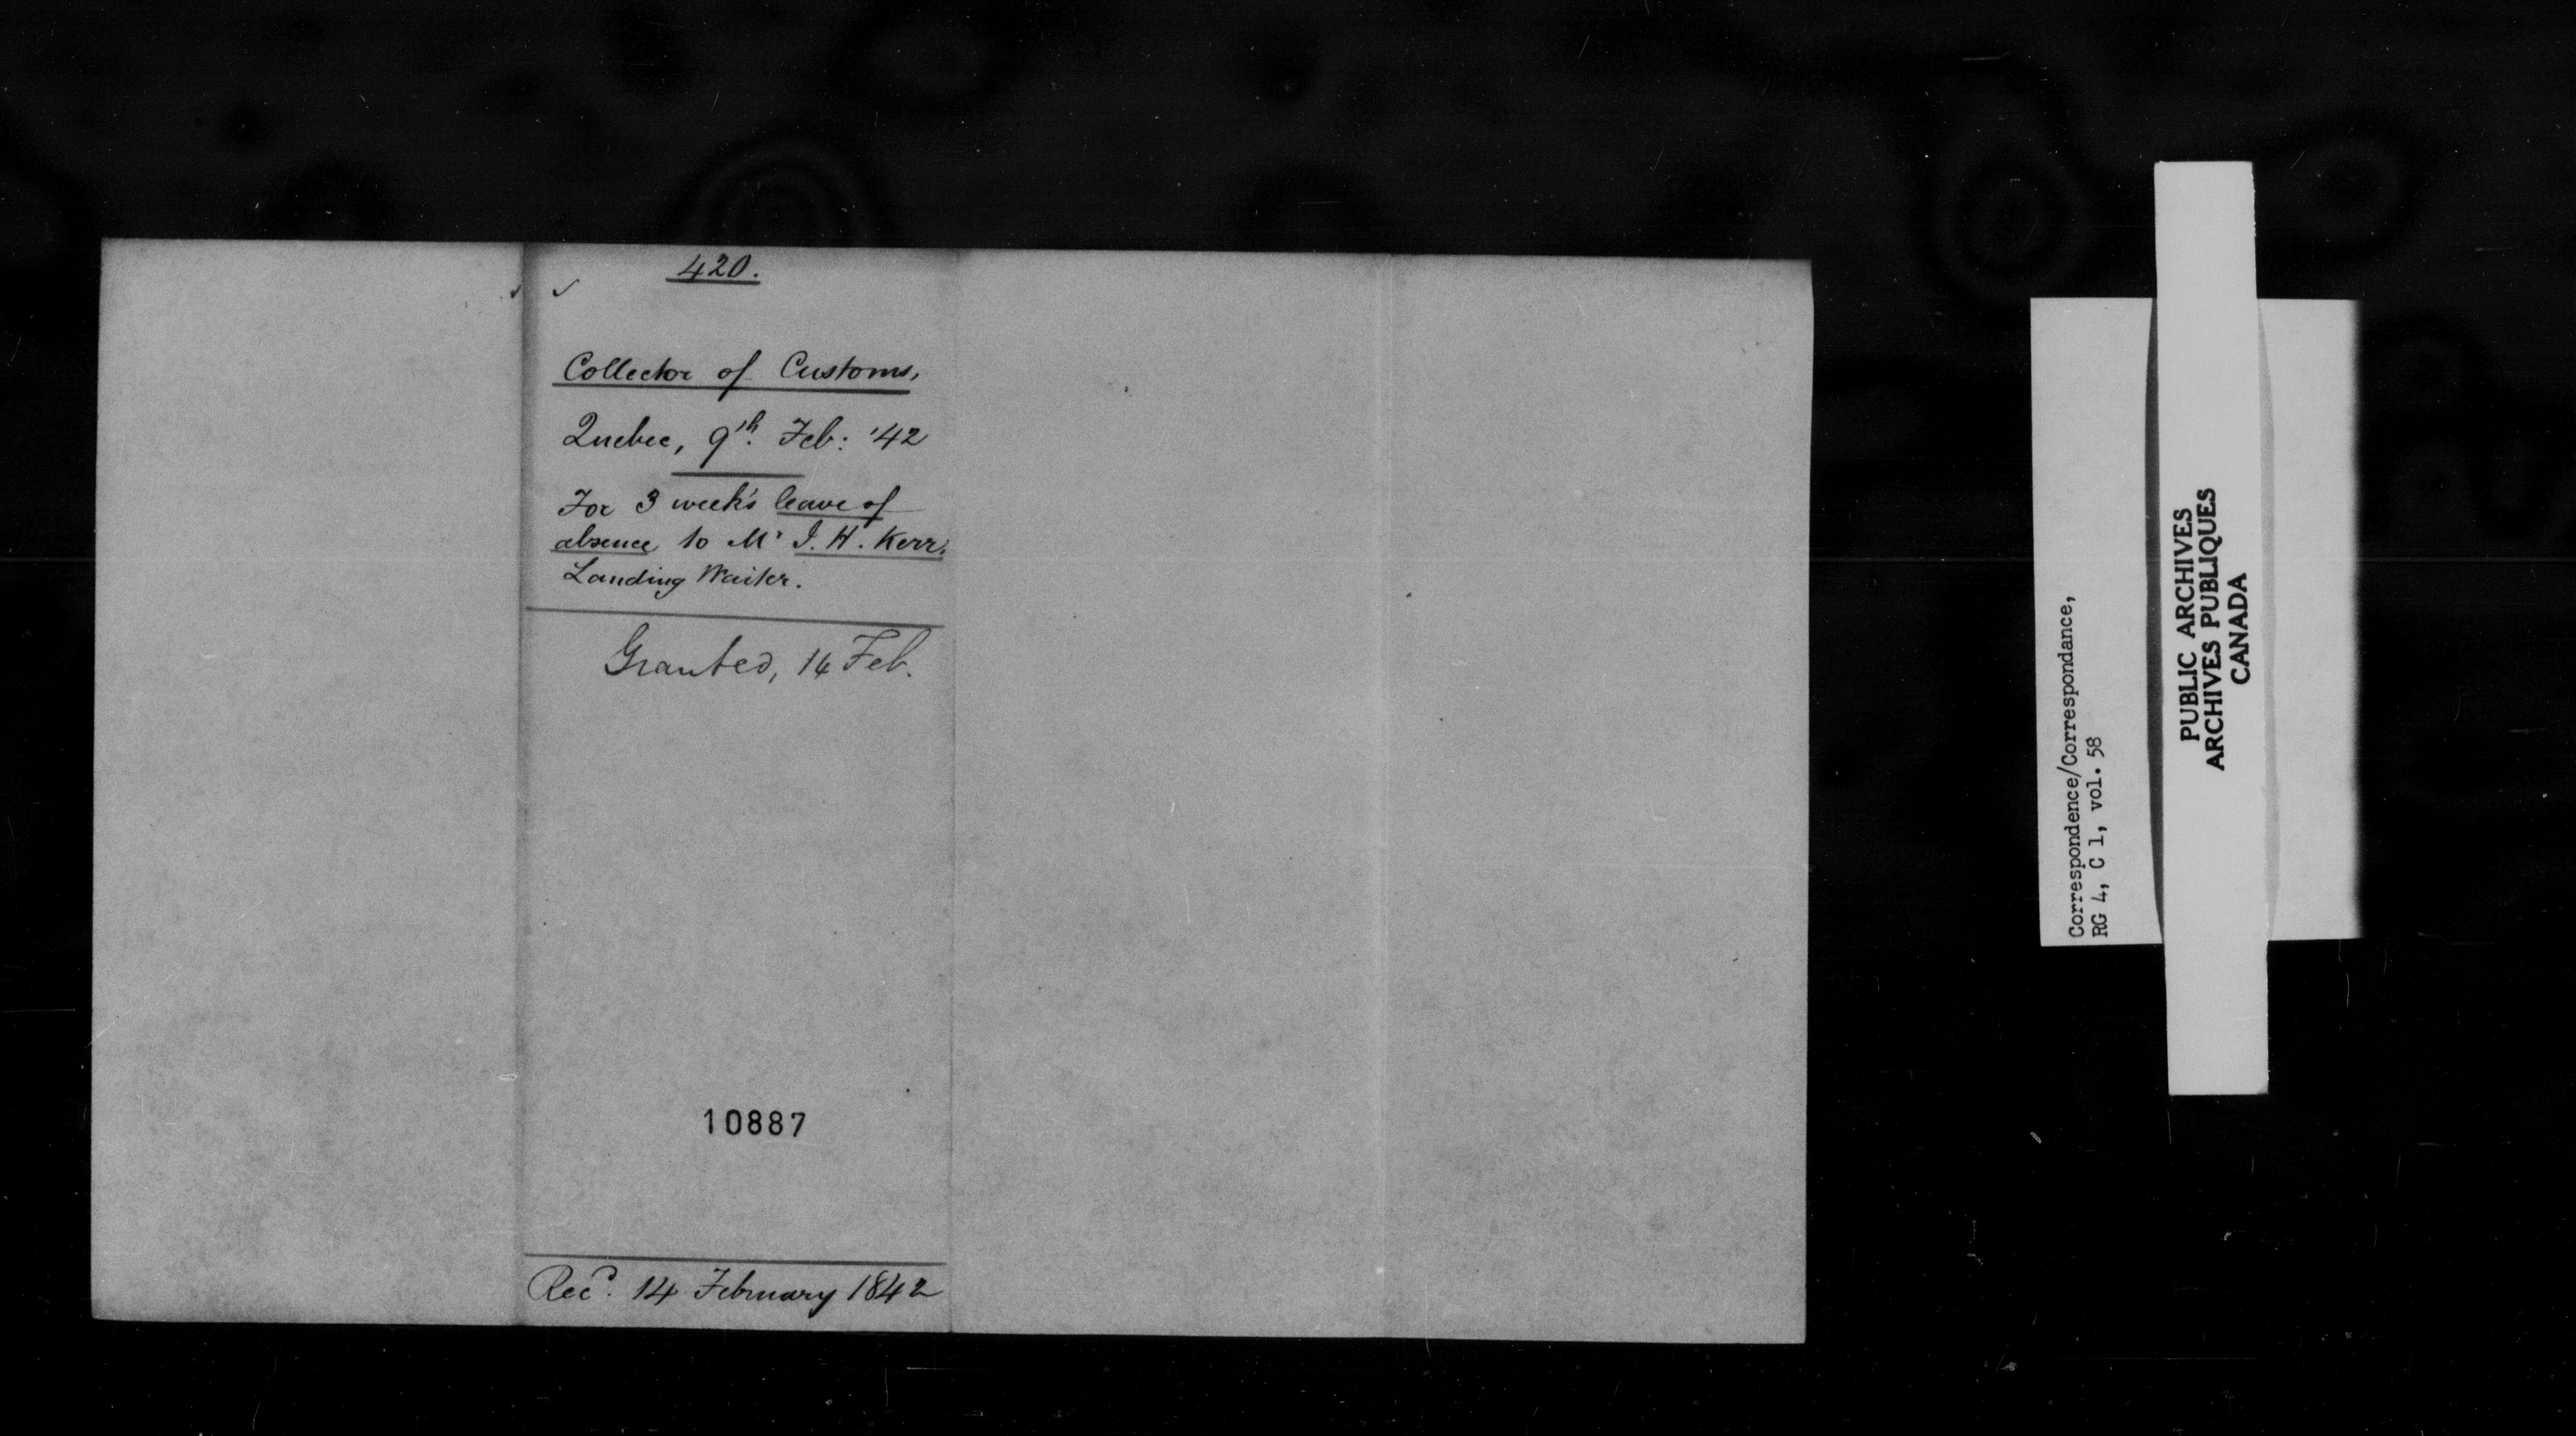 420.
Collector of Customs,
Quebec, 9th. Feb: '42
For 3 week's leave of
absence to Mr J. H. Kerr,
Landing Waiter.
Granted, 14 Feb.
10887
Recd. 14 February 1842
Correspondence/Correspondance,
RG 4, C 1, vol. 58
PUBLIC ARCHIVES
ARCHIVES PUBLIQUES
CANADA